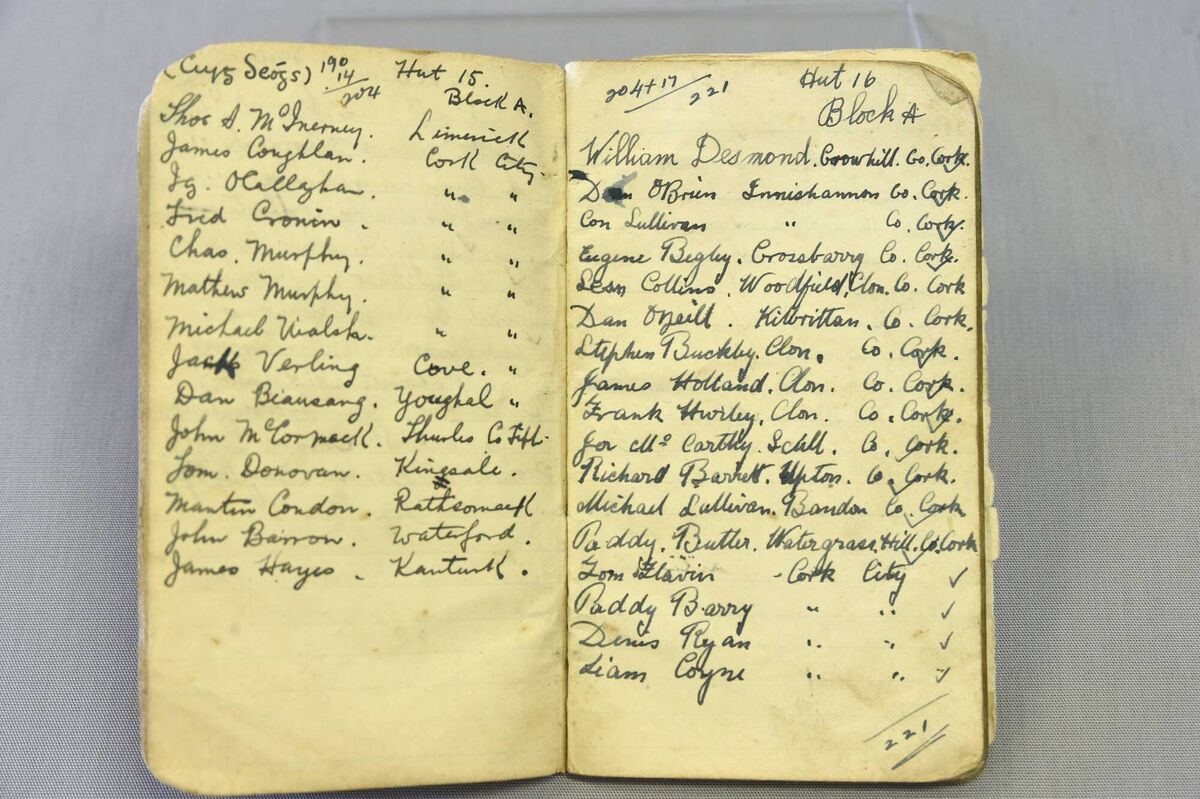 190
14
204
Hut 15.
Block A.
Thos S. McInerney. Limerick
James Coughlan. Cork City
Ig. OCallaghan. " "
Fred Cronin. " "
Chas. Murphy. " "
Mathew Murphy. " "
Michael Walsh. " "
Jack Verling Cove. "
Dan Beausang. Youghal "
John McCormack. Thurles Co Tipp.
Tom. Donovan. Kinsale.
Martin Condon. Rathcormack
John Barron. Waterford.
James Hayes. Kanturk.
204+17
221
Hut 16
Block A
William Desmond. Crowhill. Co. Cork.
Dan OBrien Innishannon Co. Cork.
Con Sullivan " Co. Cork.
Eugene Begley. Crossbarry Co. Cork.
Sean Collins. Woodfield, Clon. Co. Cork
Dan ONeill. Kilbrittan. Co. Cork.
Stephen Buckley. Clon. Co. Cork.
James Holland. Clon. Co. Cork.
Frank Hurley. Clon. Co. Cork.
Jer McCarthy. Schll. Co. Cork.
Richard Barrett. Upton. Co. Cork.
Michael Sullivan. Bandon Co. Cork
Paddy. Butler. Watergrass. Hill. Co. Cork
Tom Flavin - Cork City ✓
Paddy Barry " " ✓
Denis Ryan " " ✓
Liam Coyne " " ✓
221